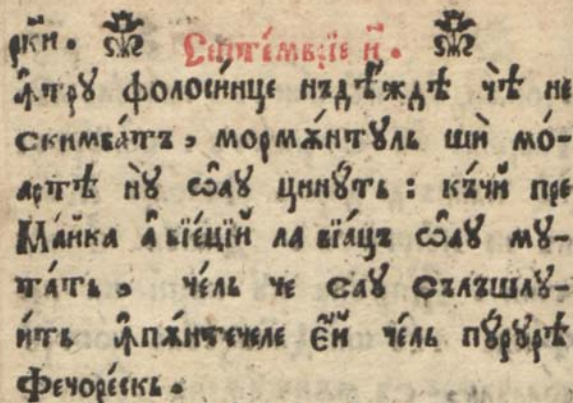 ркй.
Септе́мврїе и҃.
ꙟтру фолоси́нце нъдѣ́ждѣ чѣ́ не
скимба́тъ, мормѫ́нтꙋль шѝ мо́-
артѣ нꙋ̀ ѡ҆аꙋ цинꙋ́ть: къ́чй пре
Ма́йка а҆ вїе́цїй ла вїа́цъ ѡ҆аꙋ мꙋ-
та́ть, че́ль че саꙋ сълъшлꙋ-
и́ть ꙟпѫ́нтечеле е҆́й че́ль пꙋ́рꙋрѣ
фечоре́скь.